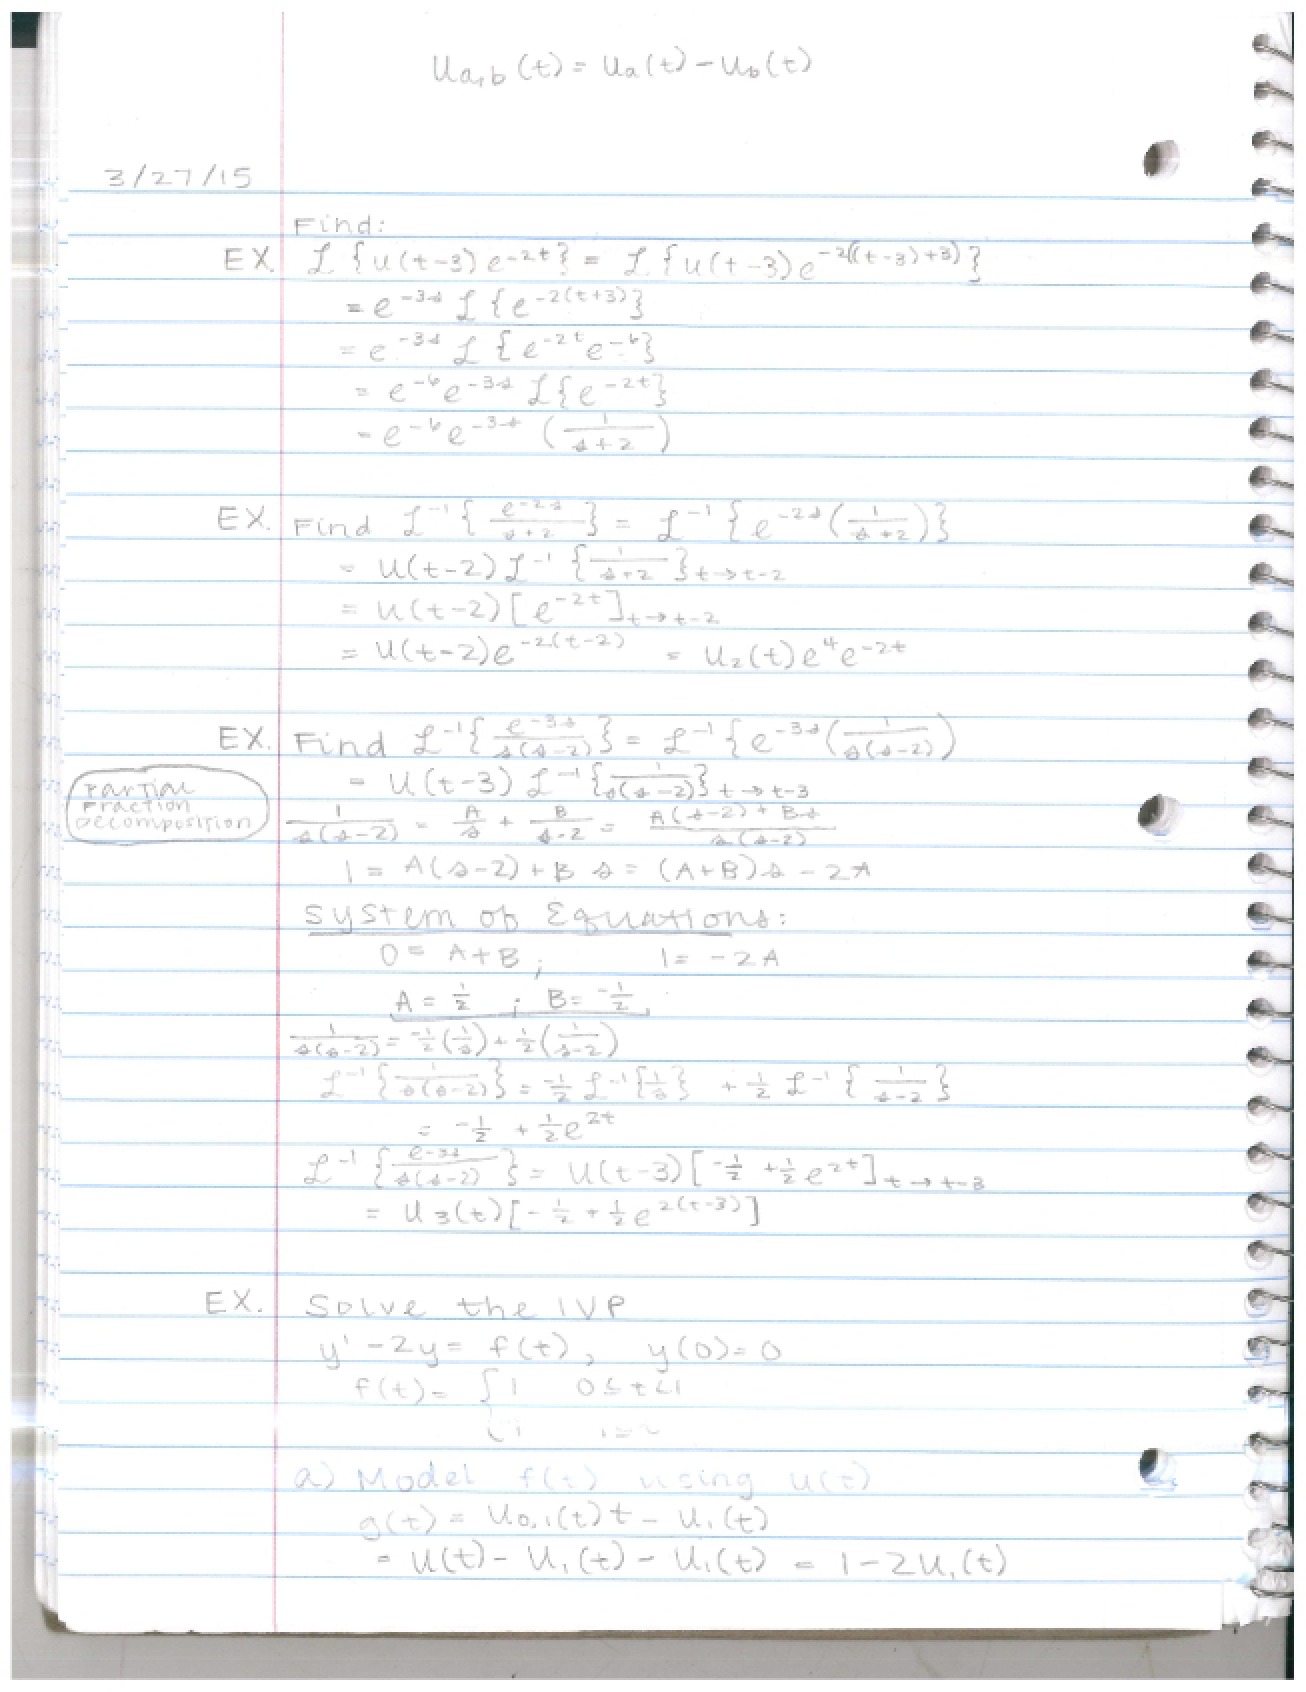 u_{a,b}(t) = u_a(t) - u_b(t)
3/27/15
Find:
EX. ℒ{u(t-3)e^{-2t}} = ℒ{u(t-3)e^{-2((t-3)+3)}}
= e^{-3s} ℒ{e^{-2(t+3)}}
= e^{-3s} ℒ{e^{-2t}e^{-6}}
= e^{-6}e^{-3s} ℒ{e^{-2t}}
= e^{-6}e^{-3s} (1/(s+2))
EX. Find ℒ^{-1}{e^{-2s}/(s+2)} = ℒ^{-1}{e^{-2s}(1/(s+2))}
= u(t-2)ℒ^{-1}{1/(s+2)}_{t→t-2}
= u(t-2)[e^{-2t}]_{t→t-2}
= u(t-2)e^{-2(t-2)} = u_2(t)e^4e^{-2t}
EX. Find ℒ^{-1}{e^{-3s}/(s(s-2))} = ℒ^{-1}{e^{-3s}(1/(s(s-2)))
= u(t-3) ℒ^{-1}{1/(s(s-2))}_{t→t-3}
Partial
Fraction
Decomposition
1/(s(s-2)) = A/s + B/(s-2) = (A(s-2) + Bs)/(s(s-2))
1 = A(s-2) + B s = (A+B)s - 2A
System of Equations:
0 = A+B ; 1 = -2A
A = 1/2 ; B = -1/2
1/(s(s-2)) = -1/2(1/s) + 1/2(1/(s-2))
ℒ^{-1}{1/(s(s-2))} = -1/2 ℒ^{-1}{1/s} + 1/2 ℒ^{-1}{1/(s-2)}
= -1/2 + 1/2e^{2t}
ℒ^{-1}{e^{-3s}/(s(s-2))} = u(t-3)[-1/2 + 1/2e^{2t}]_{t→t-3}
= u_3(t)[-1/2 + 1/2e^{2(t-3)}]
EX. Solve the IVP
y' - 2y = f(t), y(0) = 0
f(t) = { 1 0≤t<1
a) Model f(t) using u(t)
g(t) = u_{0,1}(t)t - u_1(t)
= u(t) - u_1(t) - u_1(t) = 1 - 2u_1(t)